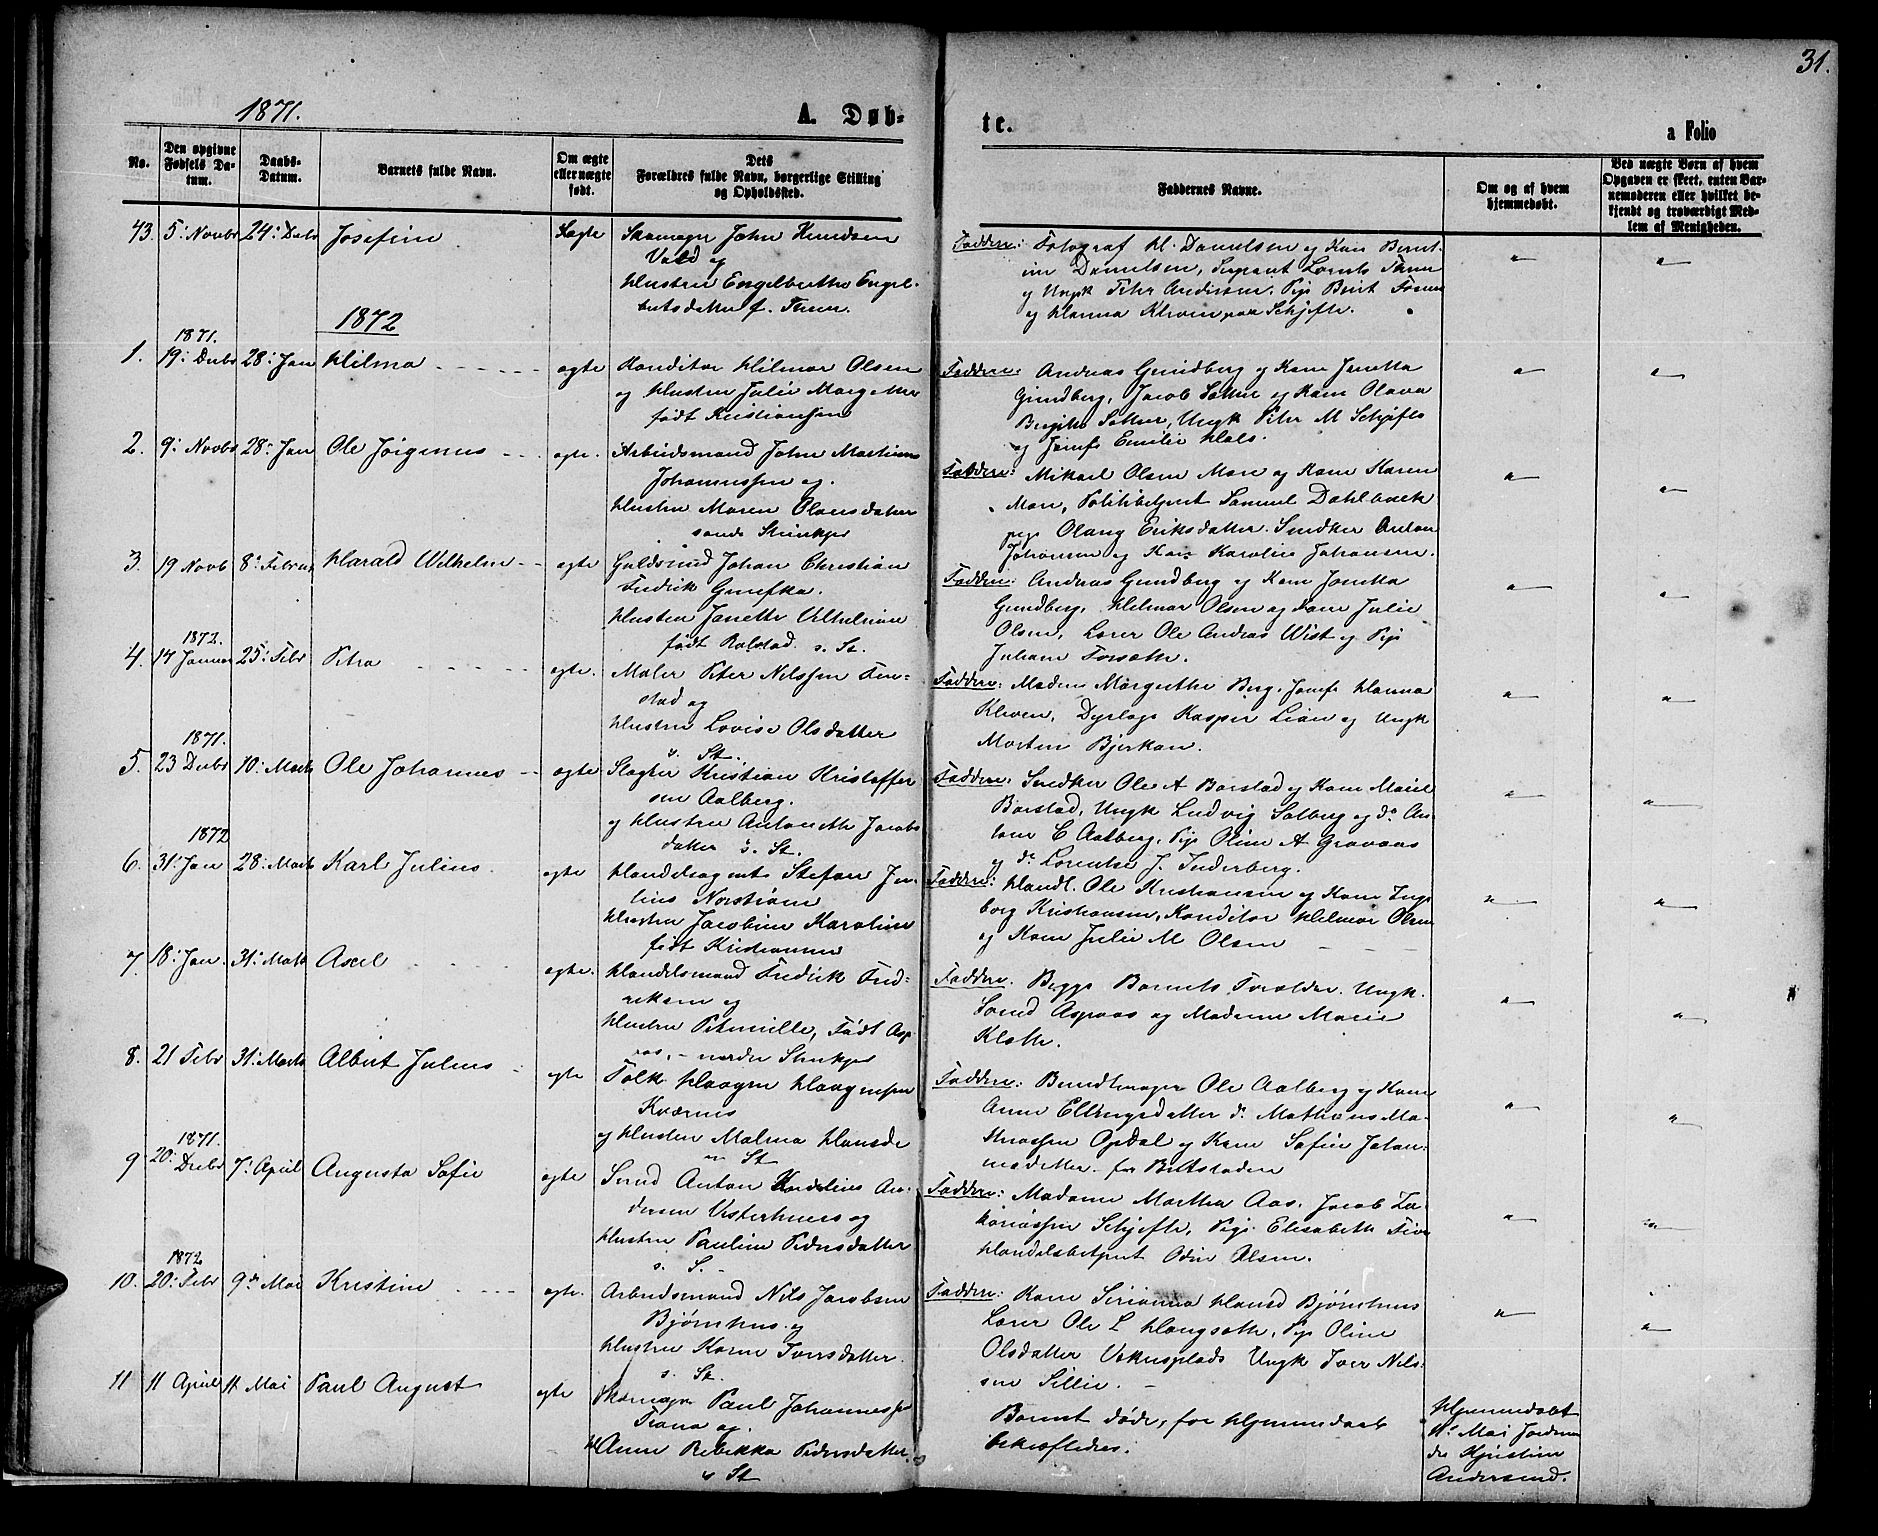 31.
1871.
A. Døb-
te.
a Folio
No.
Den opgivne Fødsels Da-tum.
Daabs-Datum.
Barnets fulde Navn.
Om ægte eller uægte født.
Dets Forældres fulde Navn, borgerlige Stilling og Opholdssted.
Faddernes Navne.
Om og af hvem hjemmedøbt.
Ved uægte Børn af hvem Opgaven er skeet, enten Bar-nemoderen eller hvilket be-kjendt og troværdigt Med-lem af Menigheden.
43. 5: Novbr 24: Debr Josefine
Skomager John Knudsen
Vald og
Hustru Engelberthe Engel-
Faddere: Fotograf H. Danielsen og Kone Bernt-
ine Danielsen, Sergeant Lorents
og Ungk Peter Andersen, Pige Berit
og Hanna Kleven paa Schjefte.
1872
1871.
1. 19: Debr 28: Jan Hilma ægte
Konditor Hilmar Olsen
og Hustru Julie Margrethe
født Kristiansen
Faddere: Andreas Grundberg og Kone Janetta
Grundberg, Jacob Sather og Kone Olava
Birgitte Sather, Ungk Peter M Schjefte
og Jomfr Emilie
2. 9: Novbr 28: Jan Ole Jørginus ægte.
Arbeidsmand John Martinus
Johannessen og
Hustru Maren Olausdatter
Faddere: Mikael Olsen Moen og Kone Karen
Moen, Politibetjent Samuel Dahlback
pige Olaug Eriksdatter. Snedker Anton
Johansen og Kone Karoline Johansen.
3. 19 Novb 8: Februar Harald Wilhelm ægte
Guldsmed Johan Christian
Fredrik
Hustru Janette Vilhelmine
født Rolstad s. St.
Faddere: Andreas Grundberg og Kone Janetta
Grundberg, Hilmar Olsen og Kone Julie
Olsen, Lærer Ole Andreas Wist og Pige
Juliane Forseth.
1872.
4. 17 Januar 25: Febr Petra ægte.
Maler Peter Nilssen
og
Hustru Lovise Olsdatter
s. St.
Faddere: Madam Margrethe Berg, Jomfr Hanna
Kleven, Dyrlæge Kasper Lian og Ungk
Morten Bjerkan.
1871.
5. 23 Debr 10: Marts Ole Johannes ægte
Slagter Kristian Kristoffer
sen Aalberg.
og Hustru Antonette Jacobs
datter s. St.
Faddere: Snedker Ole A Barstad og Kone Marie
Barstad, Ungk Ludvig Solberg og do An-
ton C Aalberg, Pige Oline A Gravaas
og do Lorentse J. Inderberg.
1872
6. 31: Jan 28: Marts Karl Julius ægte
Handelsagent Stefan Ju-
lius Norstrøm
Hustru Jacobine Karoline
født Kristiansen
Faddere: Handl. Ole Kristiansen og Kone Inge
borg Kristiansen, Konditor Hilmar Olsen
og Kone Julie M Olsen
7. 18: Jan. 31: Marts Axel ægte.
Handelsmand Fredrik Fred-
riksen og
Hustru Peternille, Født Asp
aas, - nordre Stenkjer
Faddere: Begge Barnets Forældre. Ungk.
Svend Aspaas og Madame Marie
Kleth.
8. 21 Febr 31: Marts Albert Julius ægte
Tolk Haagen Haagensen
Kværnes
og Hustru Malina Hansdr
St
Faddere: Buntmager Ole Aalberg og Kone
Anne Ellingsdatter do Mathæus Ma-
thæussen Opdal og Kone Sofie Johan-
nesdatter fra Beitstaden
1871.
9 20: Debr 7: April Augusta Sofie ægte
Smed Anton Kornelius An-
dersen Vesterhuus og
Hustru Pauline Pedersdatter
s. S.
Faddere: Madame Marthea Aas, Jacob Za-
kariassen Schjefte, Pige Elisabeth
Handelsbetjent Odin Olsen.
1872
10. 20: Febr 9de Mai Kristine ægte.
Arbeidsmand Nils Jacobsen
Bjørnhus og
Hustru Karen Iversdatter
s. St.
Faddere: Kone Serianna Hansd Bjørnhus
Lærer Ole L Haugseth, Pige Oline
Olsdatter Vekusplads Ungk Iver Nils-
sen Lillie.
11 11 April 11 Mai Paul August ægte
Skomager Paul Johannessen
Trana og
H Anne Rebekka Pedersdatter
s St
Barnet døde, før Hjemmedaab
bekræftedes.
Hjemmedøbt
11: Mai Jordemo
dre Kjerstine
Andersund.